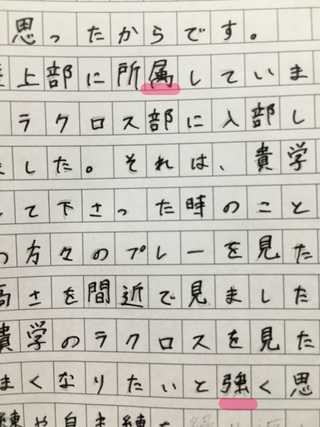 思ったからです。
上部に所属していま
ラクロス部に入部し
した。それは、貴学
して下さった時のこと
の方々のプレーを見た
高さを間近で見ました
貴学のラクロスを見た
まくなりたいと強く思